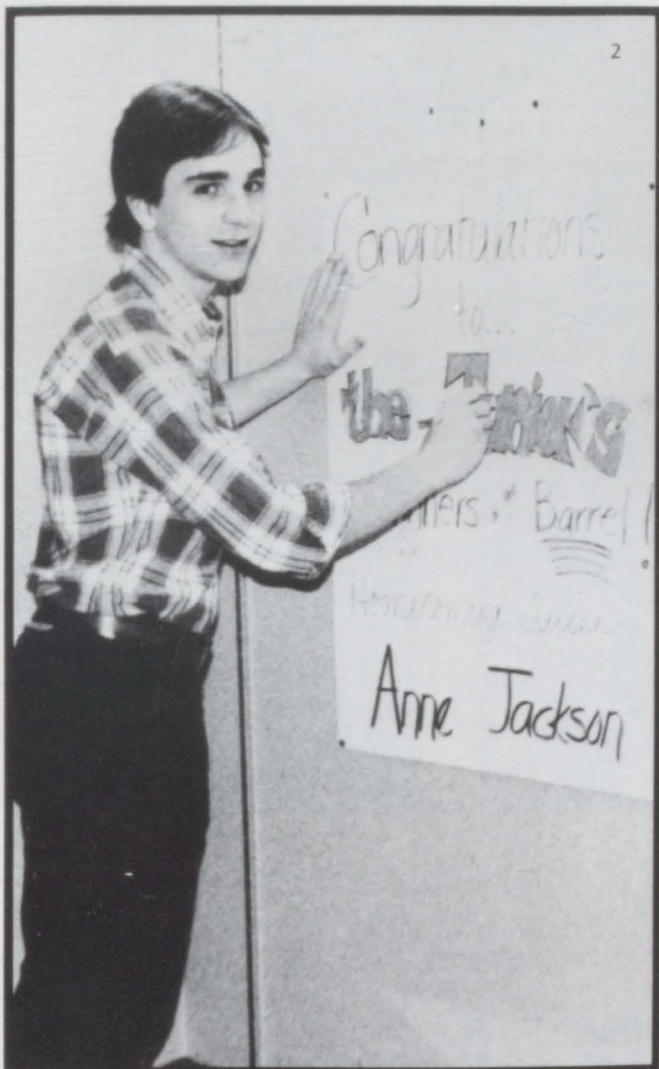 2
Congratulations
to...
the Junior's
Barrel!
Anne Jackson